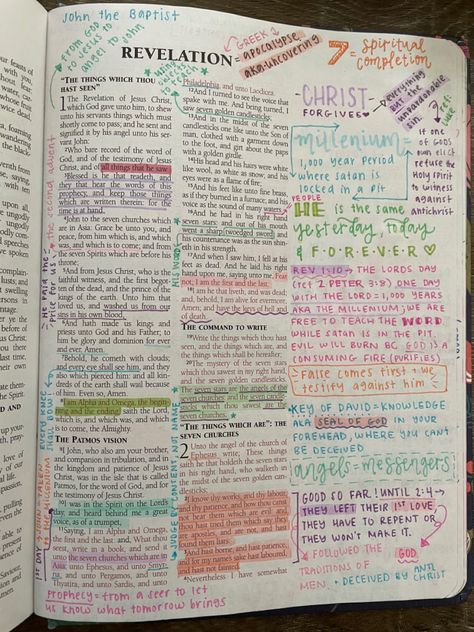 John the Baptist
from GOD
to Jesus to
angel to John
REVELATION
GREEK
= apocalypse,
aka: uncovering
7 = spiritual
completion
"THE THINGS WHICH THOU
HAST SEEN"
1 The Revelation of Jesus Christ,
which God gave unto him, to shew
unto his servants things which must
shortly come to pass; and he sent and
signified it by his angel unto his ser-
vant John:
2Who bare record of the word
of God, and of the testimony of Jesus
Christ, and of all things that he saw.
3Blessed is he that readeth, and
they that hear the words of this
prophecy, and keep those things
which are written therein: for the
time is at hand.
4John to the seven churches which
are in Asia: Grace be unto you, and
peace, from him which is, and which
was, and which is to come; and from
the seven Spirits which are before his
throne;
5And from Jesus Christ, who is the
faithful witness, and the first begot-
ten of the dead, and the prince of the
kings of the earth. Unto him that
loved us, and washed us from our
sins in his own blood,
6And hath made us kings and
priests unto God and his Father; to
him be glory and dominion for ever
and ever. Amen.
7Behold, he cometh with clouds;
and every eye shall see him, and they
also which pierced him: and all kin-
dreds of the earth shall wail because
of him. Even so, Amen.
8I am Alpha and Omega, the begin-
ning and the ending, saith the Lord,
which is, and which was, and which
is to come, the Almighty.
THE PATMOS VISION
9I John, who also am your brother,
and companion in tribulation, and in
the kingdom and patience of Jesus
Christ, was in the isle that is called
Patmos, for the word of God, and for
the testimony of Jesus Christ.
10I was in the Spirit on the Lord's
day, and heard behind me a great
voice, as of a trumpet,
11Saying, I am Alpha and Omega,
the first and the last: and, What thou
seest, write in a book, and send it
unto the seven churches which are in
Asia; unto Ephesus, and unto Smyr-
na, and unto Pergamos, and unto
Thyatira, and unto Sardis, and unto
Philadelphia, and unto Laodicea.
12And I turned to see the voice that
spake with me. And being turned, I
saw seven golden candlesticks;
13And in the midst of the seven
candlesticks one like unto the Son of
man, clothed with a garment down
to the foot, and girt about the paps
with a golden girdle.
14His head and his hairs were white
like wool, as white as snow; and his
eyes were as a flame of fire;
15And his feet like unto fine brass,
as if they burned in a furnace; and his
voice as the sound of many waters.
16And he had in his right hand
seven stars: and out of his mouth
went a sharp twoedged sword: and his
countenance was as the sun shin-
eth in his strength.
17And when I saw him, I fell at his
feet as dead. And he laid his right
hand upon me, saying unto me, Fear
not; I am the first and the last:
18I am he that liveth, and was dead;
and, behold, I am alive for evermore,
Amen; and have the keys of hell and
of death.
THE COMMAND TO WRITE
19Write the things which thou hast
seen, and the things which are, and the
things which shall be hereafter;
20The mystery of the seven stars
which thou sawest in my right hand,
and the seven golden candlesticks.
The seven stars are the angels of the
seven churches: and the seven candle-
sticks which thou sawest are the
seven churches.
"THE THINGS WHICH ARE": THE
SEVEN CHURCHES
2 Unto the angel of the church
of Ephesus write; These things
saith he that holdeth the seven stars
in his right hand, who walketh in
the midst of the seven golden can-
dlesticks;
2I know thy works, and thy labour,
and thy patience, and how thou canst
not bear them which are evil: and
thou hast tried them which say they
are apostles, and are not, and hast
found them liars:
3And hast borne, and hast patience,
and for my name's sake hast laboured,
and hast not fainted.
4Nevertheless I have somewhat
the second advent
HIS WORD
PEOPLE
JUDGE BY CONTENT NOT NAME
1ST DAY
CHRIST
FORGIVES
everything
but the
unpardonable
sin.
millenium
1,000 year period
where satan is
locked in a pit
if one
of GODS
elect
refuse the
Holy Spirit
to witness
against
antichrist
HE is the same
yesterday, today
& FOREVER
REV 1:10 → THE LORDS DAY
(ref 2 PETER 3:8) ONE DAY
WITH THE LORD = 1,000 YEARS
AKA THE MILLENIUM; WE ARE
FREE TO TEACH THE WORD
WHILE SATAN IS IN THE PIT.
EVIL WILL BURN. GOD IS A
CONSUMING FIRE (PURIFIES)
False comes first + we
testify against him
KEY OF DAVID = KNOWLEDGE
AKA SEAL OF GOD IN YOUR
FOREHEAD, WHERE YOU CAN'T
BE DECEIVED
angels = messengers
GOOD SO FAR! UNTIL 2:4→
THEY LEFT THEIR 1ST LOVE,
THEY HAVE TO REPENT OR
THEY WON'T MAKE IT.
GOD
FOLLOWED THE
TRADITIONS OF
MEN
+ DECEIVED BY ANTI
CHRIST
prophecy → from a seer to let
us know what tomorrow brings